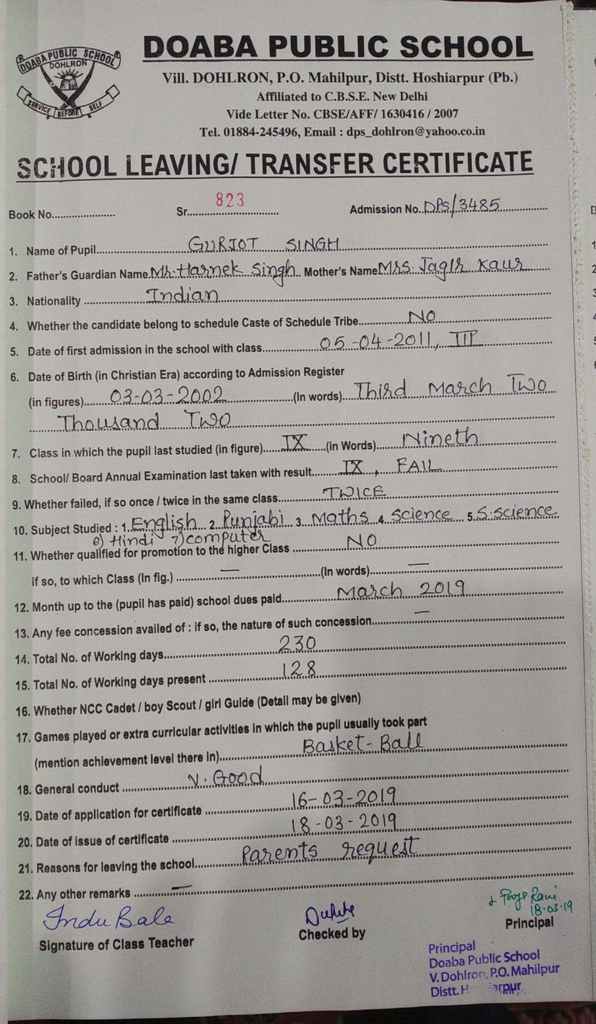 DOABA PUBLIC SCHOOL
DOHLRON
SERVICE BEFORE SELF
DOABA PUBLIC SCHOOL
Vill. DOHLRON, P.O. Mahilpur, Distt. Hoshiarpur (Pb.)
Affiliated to C.B.S.E. New Delhi
Vide Letter No. CBSE/AFF/ 1630416 / 2007
Tel. 01884-245496, Email : dps_dohlron@yahoo.co.in
SCHOOL LEAVING/ TRANSFER CERTIFICATE
Book No.................... Sr. 823 Admission No. DPS/3485
1. Name of Pupil GURJOT SINGH
2. Father's Guardian Name Mr. Harnek Singh Mother's Name Mrs. Jagir Kaur
3. Nationality Indian
4. Whether the candidate belong to schedule Caste of Schedule Tribe NO
5. Date of first admission in the school with class 05-04-2011, IIP
6. Date of Birth (in Christian Era) according to Admission Register
(in figures) 03-03-2002 (In words) Third March Two
Thousand Two
7. Class in which the pupil last studied (in figure) IX (in Words) Nineth
8. School/ Board Annual Examination last taken with result IX, FAIL
9. Whether failed, if so once / twice in the same class TWICE
10. Subject Studied : 1. English 2. Punjabi 3. Maths 4. Science 5. S.Science
6) Hindi 7) Computer
11. Whether qualified for promotion to the higher Class NO
if so, to which Class (In fig.) — (In words) —
12. Month up to the (pupil has paid) school dues paid March 2019
13. Any fee concession availed of : if so, the nature of such concession —
14. Total No. of Working days 230
15. Total No. of Working days present 128
16. Whether NCC Cadet / boy Scout / girl Guide (Detail may be given)
17. Games played or extra curricular activities in which the pupil usually took part
(mention achievement level there in) Basket-Ball
18. General conduct V. Good
19. Date of application for certificate 16-03-2019
20. Date of issue of certificate 18-03-2019
21. Reasons for leaving the school Parents request
22. Any other remarks —
Indu Bala
Signature of Class Teacher
Checked by
Rani
18-03-19
Principal
Principal
Doaba Public School
V. Dohlron, P.O. Mahilpur
Distt.